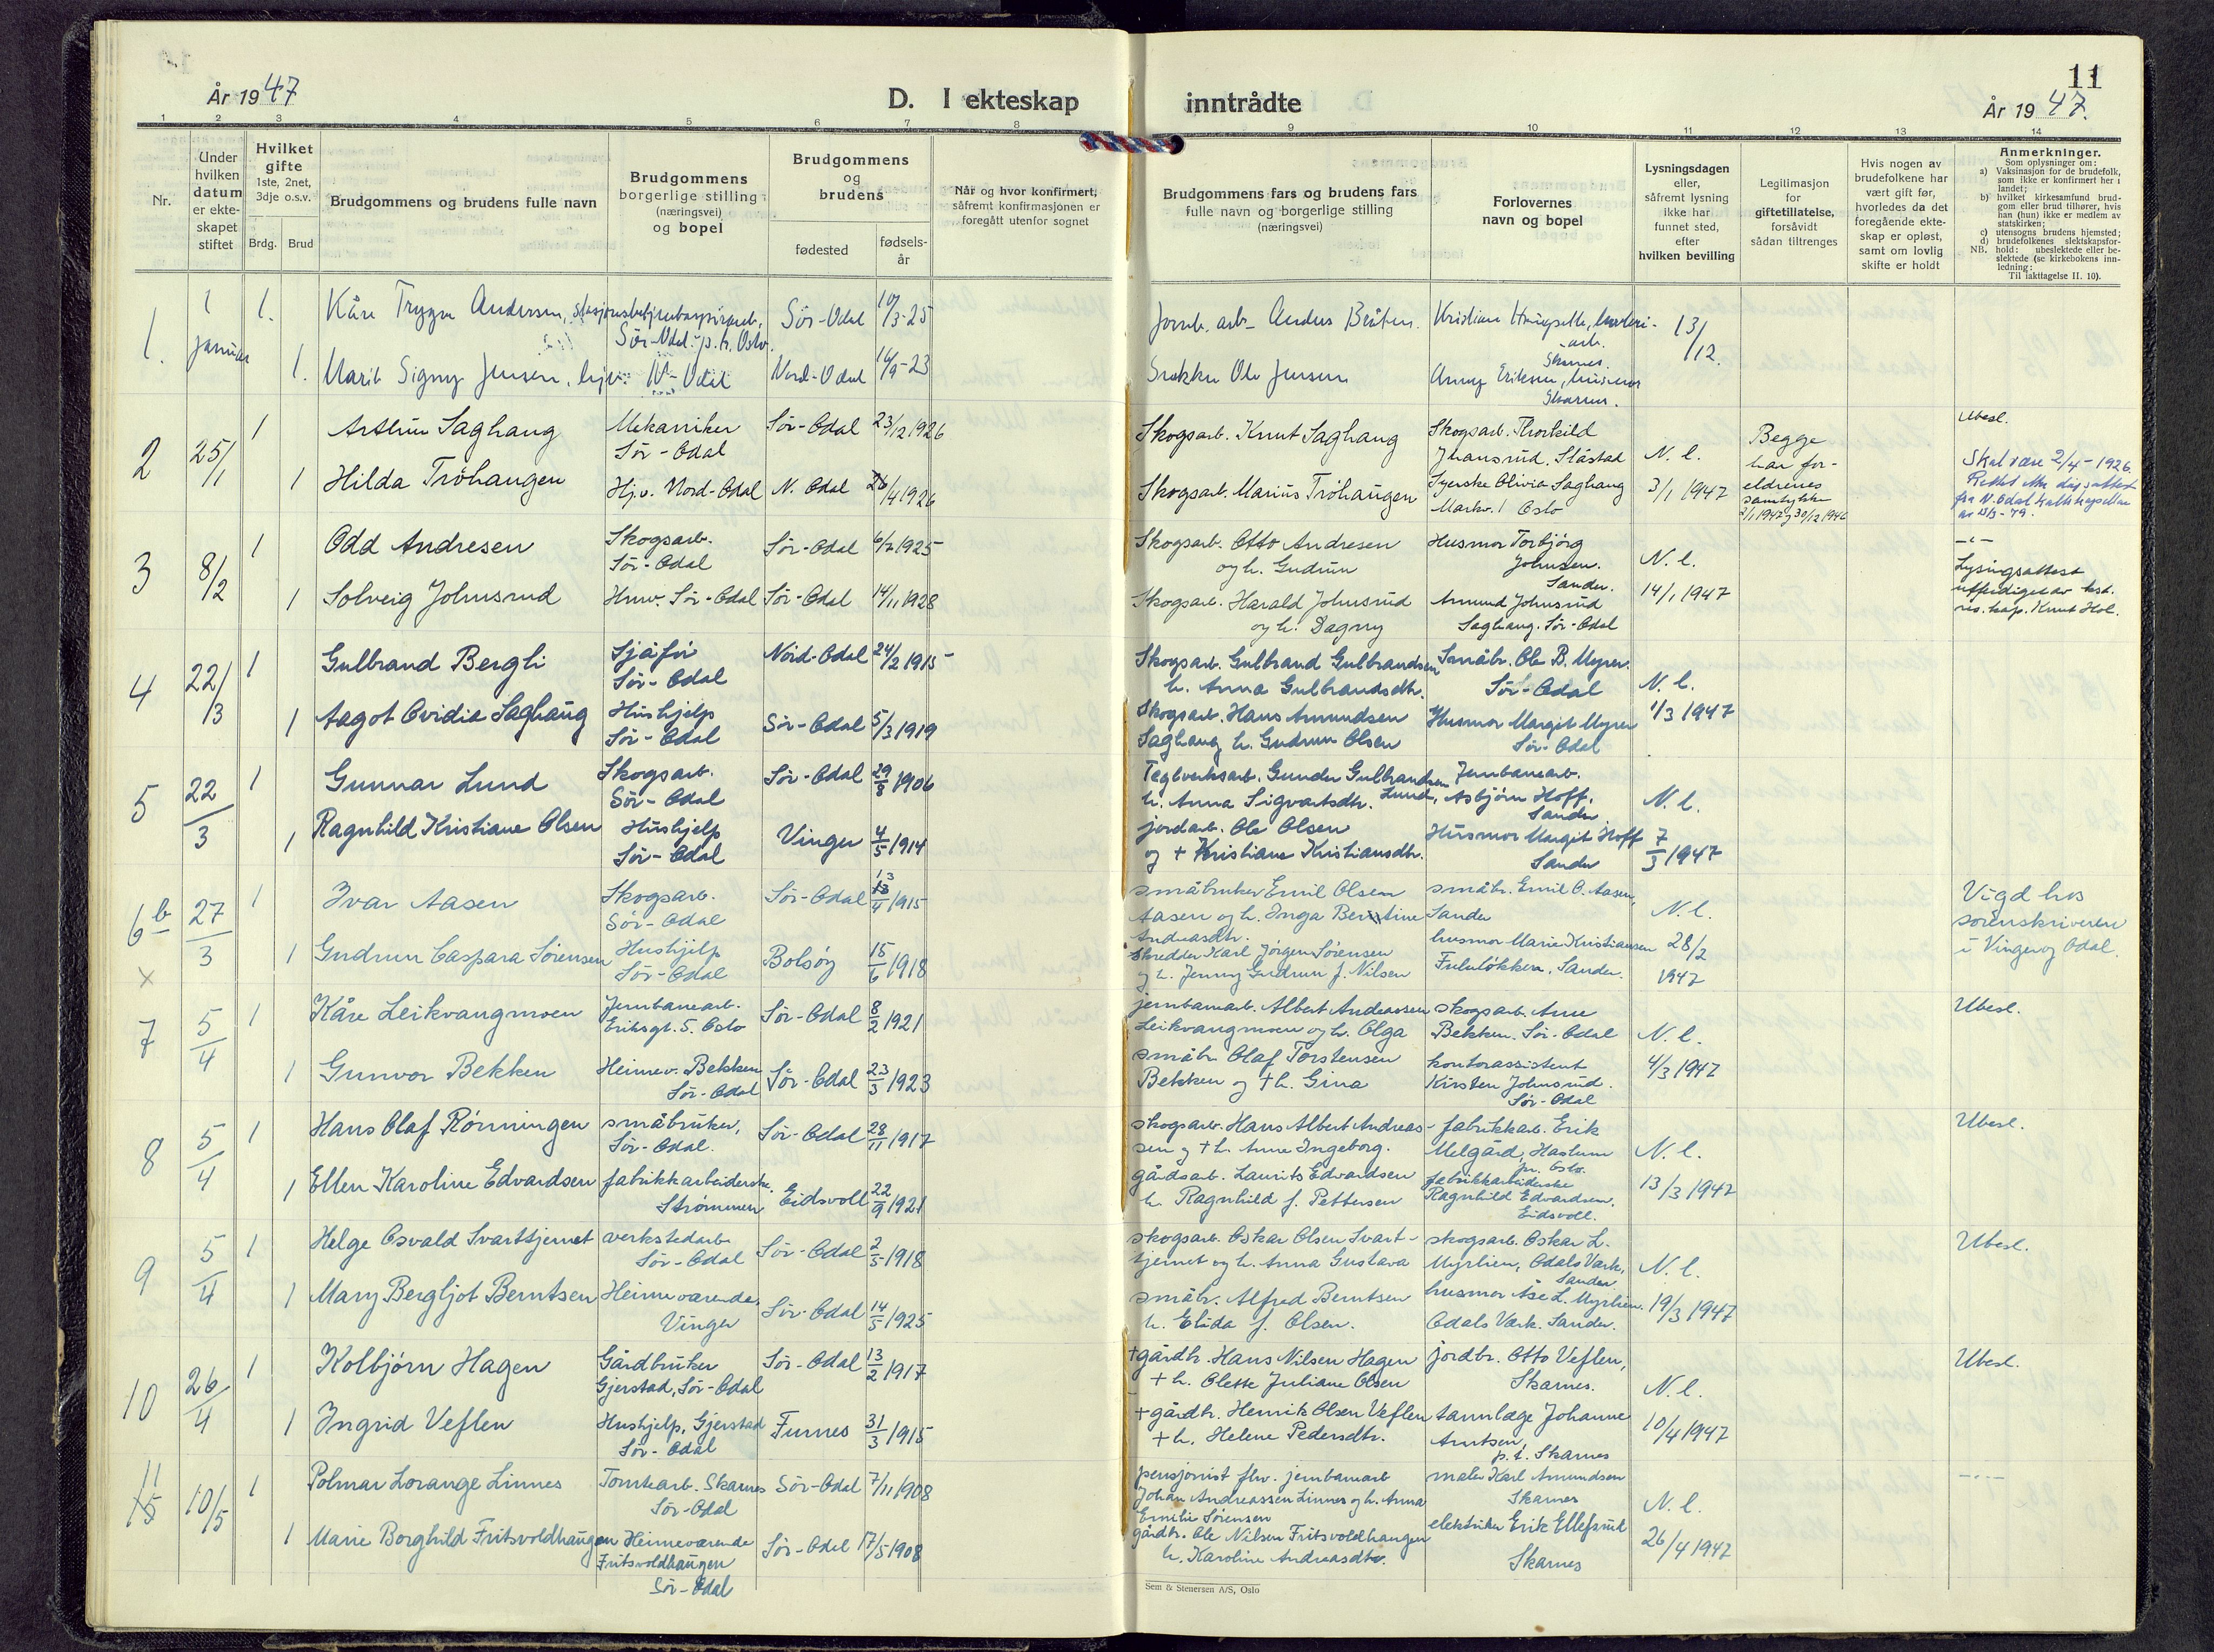 År 1947
D. I ekteskap
inntrådte
11
År 1947.
1 2 3 4 5 6 7 8 9 10 11 12 13 14
Nr.
Under
hvilken
datum
er ekte-
skapet
stiftet
Hvilket
gifte
1ste, 2net,
3dje o.s.v.
Brdg. Brud
Brudgommens og brudens fulle navn
Brudgommens
borgerlige stilling
(næringsvei)
og bopel
Brudgommens
og
brudens
fødested
fødsels-
år
Når og hvor konfirmert,
såfremt konfirmasjonen er
foregått utenfor sognet
Brudgommens fars og brudens fars
fulle navn og borgerlige stilling
(næringsvei)
Forlovernes
navn og bopel
Lysningsdagen
eller,
såfremt lysning
ikke har
funnet sted,
efter
hvilken bevilling
Legitimasjon
for
giftetillatelse,
forsåvidt
sådan tiltrenges
Hvis nogen av
brudefolkene har
vært gift før,
hvorledes da det
foregående ekte-
skap er opløst,
samt om lovlig
skifte er holdt
Anmerkninger.
Som oplysninger om:
a) Vaksinasjon for de brudefolk,
som ikke er konfirmert her i
landet;
b) hvilket kirkesamfund brud-
gom eller brud tilhører, hvis
han (hun) ikke er medlem av
statskirken;
c) utensogns brudens hjemsted;
d) brudefolkenes slektskapsfor-
hold: ubeslektede eller be-
slektede (se kirkebokens inn-
ledning:
NB.
Til iakttagelse II. 10).
1. 1 januar 1. Kåre Trygve Andersen,
Sør-Odal p.t. Oslo.
Sør-Odal 10/3-25
Jernb. arb. Anders Bråten.
13/12.
1. Marit Signy Jensen, hjv. N-Odal Nord-Odal 14/9-23
Snekker Ole Jensen
Skarnes.
2 25/1 1 Arthur Saghaug Mekaniker Sør-Odal 23/12 1926
Sør-Odal
Skogsarb. Knut Saghaug Skogsarb. Thorkild
Johansrud. Slåstad N. l.
Begge
har for-
eldrenes
samtykke
2/1 1947 30/12 1946
Ubesl.
1 Hilda Trøhaugen Hj.v. Nord-Odal N. Odal 26/4 1926
Skogsarb. Marius Trøhaugen Syerske Olivia Saghaug 3/1 1947
Markv. 1 Oslo
Skal være 2/4-1926.
3 8/2 1 Odd Andresen Skogsarb. Sør-Odal 6/7 1925
Sør-Odal
Skogsarb. Otto Andresen Husmor Torbjørg
og h. Gudrun Johnsen. N. l.
Sander.
1 Solveig Johnsrud Husv. Sør-Odal Sør-Odal 14/11 1928
Skogsarb. Harald Johnsrud Amund Johnsrud 14/1 1947
og h. Dagny Saghaug. Sør-Odal
Lysingsattest
utferdiget av
res. kap. Knut Hol.
4 22/3 1 Gulbrand Bergli Sjåfør Nord-Odal 24/2 1915
Sør-Odal
Skogsarb. Gulbrand Gulbrandsen Småbr. Ole B. Myrer.
h. Anna Gulbrandsdtr. Sør-Odal N. l.
1 Aagot Ovidia Saghaug Hushjelp Sør-Odal 5/3 1919
Sør-Odal
Skogsarb. Hans Amundsen Husmor Margit Myrer 1/3 1947
Saghaug h. Gudrun Olsen Sør-Odal
5 22/3 1 Gunnar Lund Skogsarb. Sør-Odal 29/8 1906
Sør-Odal
Teglverksarb. Gunder Gulbrandsen Jernbanearb.
h. Anna Sigvartsdtr. Lund, Asbjørn Hoff. N. l.
Sander
1 Ragnhild Kristiane Olsen Hushjelp Vinger 4/5 1914
Sør-Odal
jordarb. Ole Olsen Husmor Margit Hoff 7/3 1947
og + Kristiane Kristiansdtr. Sander
6b 27/3 1 Ivar Aasen Skogsarb. Sør-Odal 13/4 1915
Sør-Odal
småbruker Emil Olsen småbr. Emil O. Aasen,
Aasen og h. Inga Berntine Sander N. l.
Andreasdtr.
Vigd hos
sorenskriveren
i Vinger og Odal.
x 1 Gudrun Caspara Sørensen Hushjelp Bolsøy 15/6 1918
Sør-Odal
Skredder Karl Jørgen Sørensen husmor Marie Kristiansen 28/2
og h. Jenny Gudrun f. Nilsen Fululøkken, Sander. 1947
7 5/4 1 Kåre Leikvangmoen Jernbanearb. Sør-Odal 8/2 1921
Eriksgt. 5. Oslo
jernbanearb. Albert Andreassen skogsarb. Arne
Leikvangmoen og h. Olga Bekken. Sør-Odal N. l.
Ubesl.
1 Gunvor Bekken Heimev. Bekken Sør-Odal 23/3 1923
Sør-Odal
småbr. Olaf Torstensen kontorassistent 4/3 1947
Bekken og + h. Gina Kirsten Johnsrud.
Sør-Odal
8 5/4 1 Hans Olaf Rønningen småbruker, Sør-Odal 28/11 1917
Sør-Odal.
skogsarb. Hans Albert Andreas- fabrikkarb. Erik
sen og + h. Anne Ingeborg. Melgård, Haslum N. l.
pr. Oslo.
Ubesl.
1 Ellen Karoline Edvardsen fabrikkarbeiderske. Eidsvoll 22/9 1921
Strømmen
gårdsarb. Laurits Edvardsen fabrikkarbeiderske 13/3 1947
h. Ragnhild f. Pettersen Ragnhild Edvardsen.
Eidsvoll.
9 5/4 1 Helge Osvald Svarttjernet verkstedarb. Sør-Odal 2/5 1918
Sør-Odal
skogsarb. Oskar Olsen Svart- skogsarb. Oskar L.
tjernet og h. Anna Gustava Myrlien, Odals Verk, N. l.
Sander
Ubesl.
1 Mary Bergljot Berntsen Heimeværende. Sør-Odal 14/5 1925
Vinger
småbr. Alfred Berntsen husmor Åse L. Myrlien. 19/3 1947
h. Elida f. Olsen. Odals Verk. Sander.
10 26/4 1 Kolbjørn Hagen Gårdbruker Sør-Odal 13/2 1917
Gjerstad, Sør-Odal
+ gårdbr. Hans Nilsen Hagen jordbr. Otto Veflen,
+ h. Olette Juliane Olsen Skarnes. N. l.
Ubesl.
1 Ingrid Veflen Hushjelp, Gjerstad Furnes 31/3 1915
Sør-Odal
+ gårdbr. Henrik Olsen Veflen tannlæge Johanne 10/4 1947
+ h. Helene Pedersdtr. Arntsen,
p.t. Skarnes
11 10/5 1 Polmar Lorange Linnes Tomtearb. Skarnes Sør-Odal 7/11 1908
Sør-Odal
pensjonist fhv. jernbanearb maler Karl Amundsen
Johan Andreassen Linnes og h. Anna Skarnes N. l.
Emilie Sørensen
1 Marie Borghild Fritsvoldhaugen Heimeværende Sør-Odal 17/5 1908
Fritsvoldhaugen
Sør-Odal
gårdbr. Ole Nilsen Fritsvoldhaugen elektriker Erik Ellefsrud 26/4 1947
h. Karoline Andreasdtr. Skarnes
Sem & Stenersen A/S, Oslo